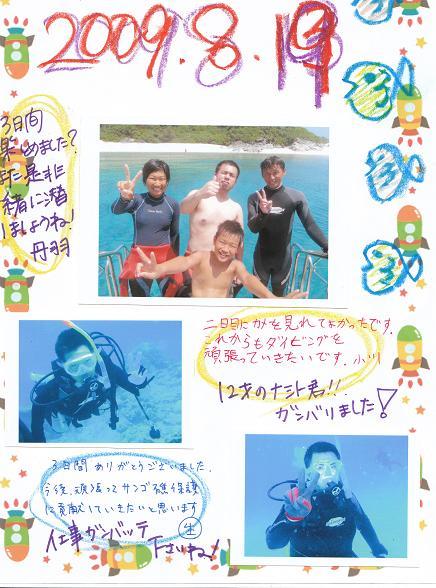 2009.8.19
3日間
楽しめました？
また是非
一緒に潜り
ましょうね！
丹羽
二日目にカメを見れてよかったです。
これからもダイビングを
頑張っていきたいです。小川
12才のナミト君！！
ガンバリました！
3日間ありがとうございました。
今後、頑張ってサンゴ礁保護
に貢献していきたいと思います
生
仕事ガンバッテ
下さいね！